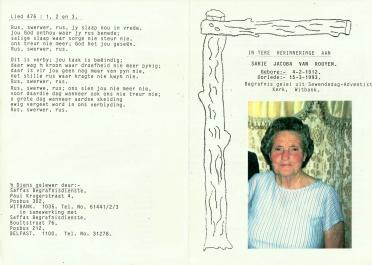 Lied 476 : 1, 2 en 3.
Rus, swerwer, rus, jy slaap nou in vrede,
jou God onthou waar jy rus benede;
salige slaap waar sorge nie steur nie,
ons treur nie meer; God het jou geseën.
Rus, swerwer, rus.
Dit is verby; jou taak is beëindig;
daar wag 'n kroon waar droefheid nie meer pynig;
daar is vir jou geen nag meer van pyn nie,
net stille rus waar kragte nie kwyn nie.
Rus, swerwer, rus.
Rus, swerwe, rus; ons sien jou nie meer nie,
voor daardie dag wanneer ook ons nie treur nie;
o grote dag wanneer aardse skeiding
ewig vergeet word in ons verblyding.
Rus, swerwer, rus.
'n Diens gelewer deur:-
Saffas Begrafnisdienste,
Paul Krugerstraat 4,
Posbus 302,
WITBANK. 1035. Tel. No. 61441/2/3
in samewerking met
Saffas Begrafnisdienste,
Boultstraat 76,
Posbus 212,
BELFAST. 1100. Tel. No. 31278.
IN TERE HERINNERINGE AAN
SARIE JACOBA VAN ROOYEN.
Gebore:- 4-2-1912.
Oorlede:- 15-3-1993.
Begrafnis gelei uit Sewendedag-Adventist
Kerk, Witbank.